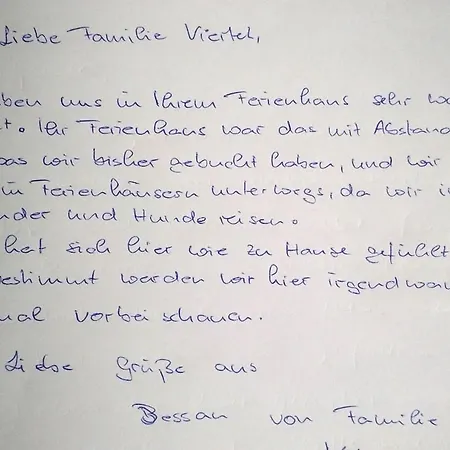 Liebe Familie Viertel,
ben uns in Ihrem Ferienhaus sehr wo
t. Ihr Ferienhaus war das mit Abstand
as wir bisher gebucht haben, und wir
in Ferienhäusern unterwegs, da wir i
nder und Hunde reisen.
hat sich hier wie zu Hause gefühlt
estimmt werden wir hier irgendwan
mal vorbei schauen.
Liebe Grüße aus
Bessan von Familie